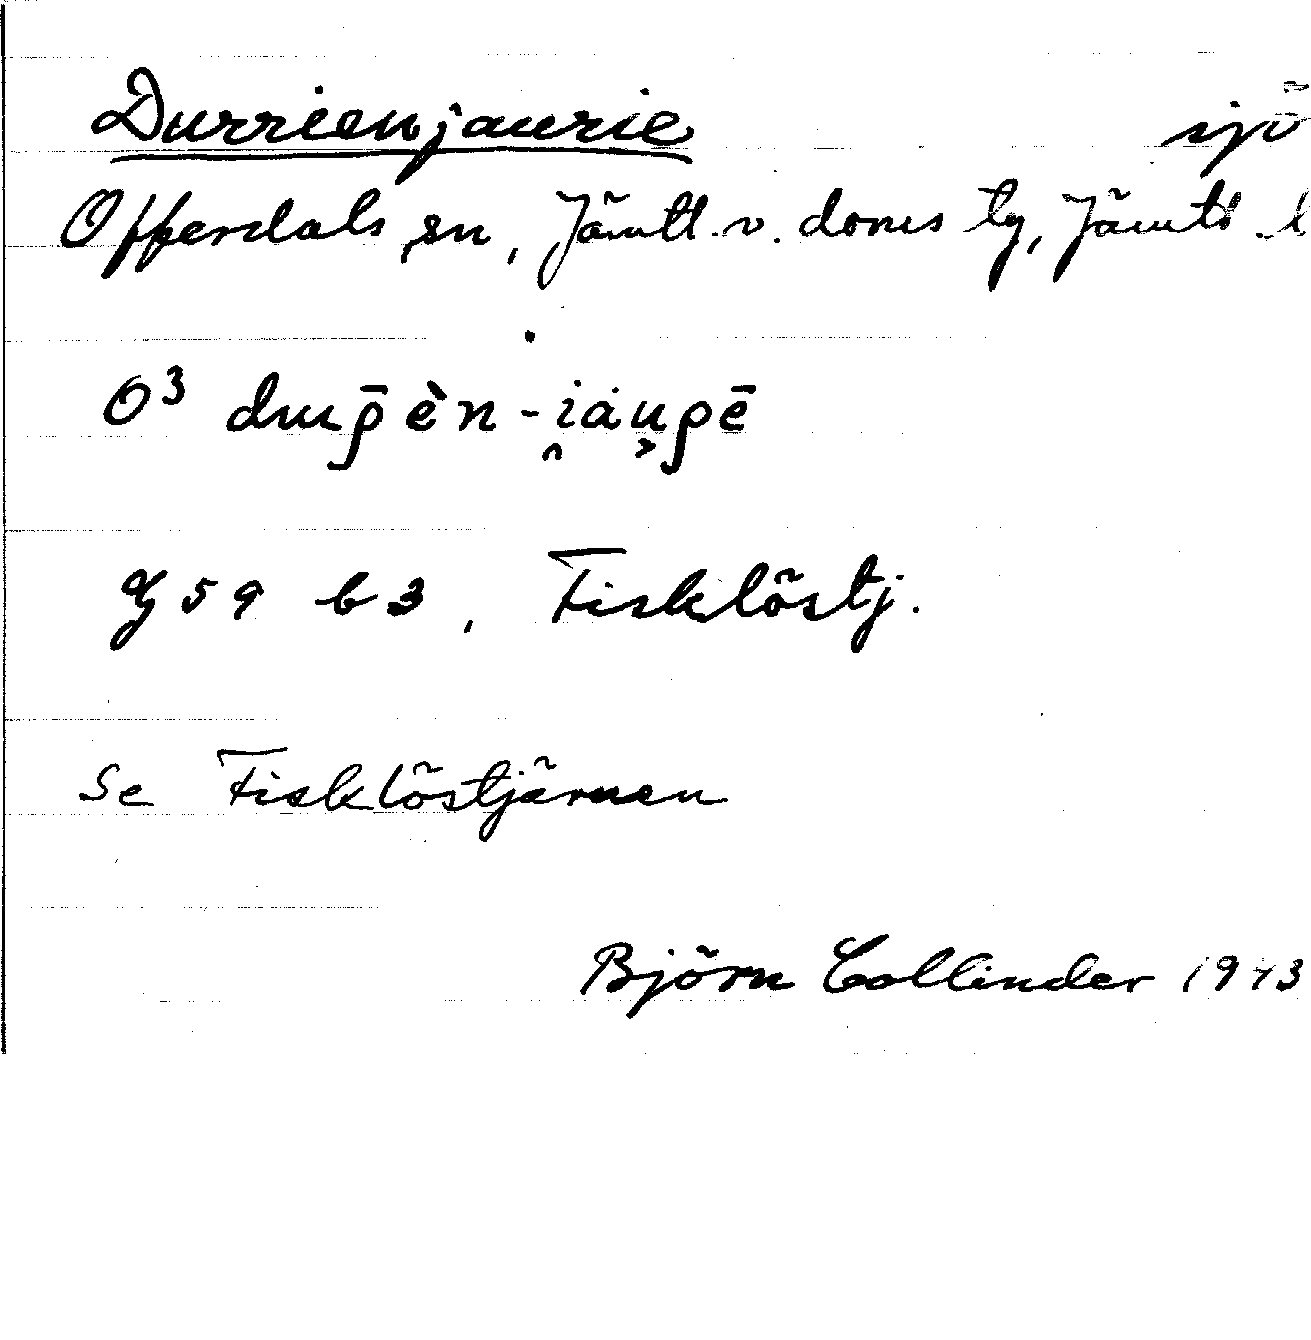 Durrienjaurie sjö
Offerdals sn, Jämtl. v. doms tg, Jämtl. l
O3
G 59 b 3, Fisklöstj.
Se Fisklöstjärnen
Björn Collinder 1943